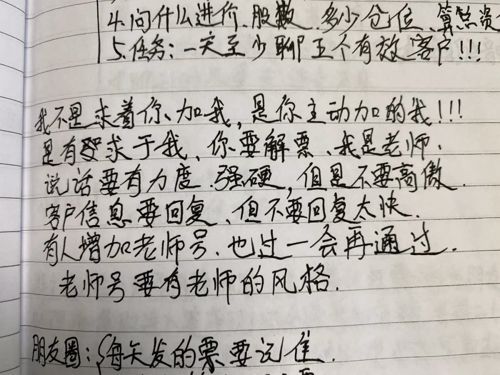 4.问什么进价.股数.多少仓位.算总资
5.任务:一天至少聊五个有效客户!!!
我不是求着你加我,是你主动加的我!!!
是有求于我、你要解票、我是老师.
说话要有力度.强硬,但是不要高傲.
客户信息要回复、但不要回复太快.
有人增加老师号、也过一会再通过.
老师号要有老师的风格.
朋友圈:每天发的票要记住.